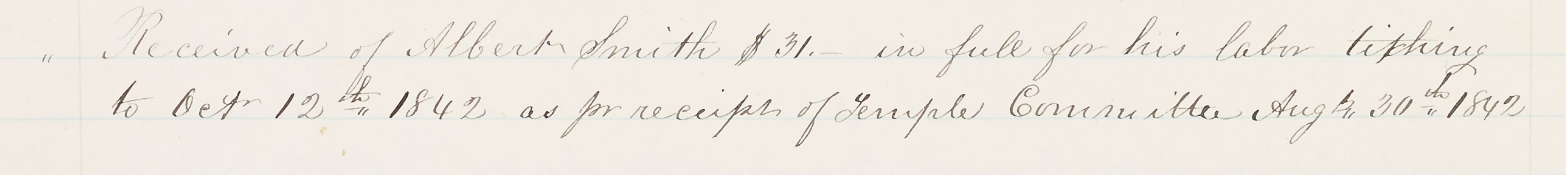 " Received of Albert Smith $31.– in full for his labor tithing
to Octr 12th 1842 as pr receipt of Temple Committee Augt. 30th 1842